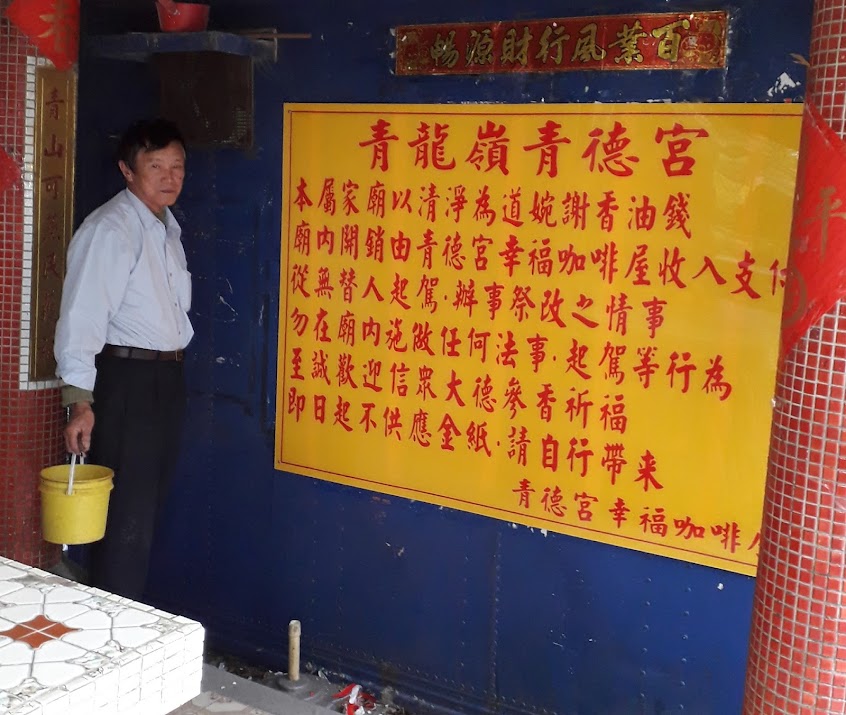 百業風行財源暢
青龍嶺青德宮
本屬家廟以清淨為道婉謝香油錢
廟內開銷由青德宮幸福咖啡屋收入支付
從無替人起駕．辦事祭改之情事
勿在廟內施做任何法事．起駕等行為
至誠歡迎信眾大德參香祈福
即日起不供應金紙．請自行帶来
青德宮幸福咖啡
青山可
平